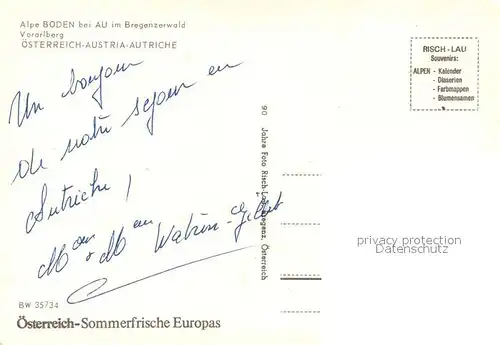 Alpe BODEN bei AU im Bregenzerwald
Vorarlberg
ÖSTERREICH-AUSTRIA-AUTRICHE
RISCH-LAU
Souvenirs:
ALPEN - Kalender
- Diaserien
- Farbmappen
- Blumensamen
Un bonjour
de notre sejour en
Autriche !
90 Jahre Foto Risch-Lau, Bregenz, Österreich
privacy protection
Datenschutz
BW 35734
Österreich-Sommerfrische Europas